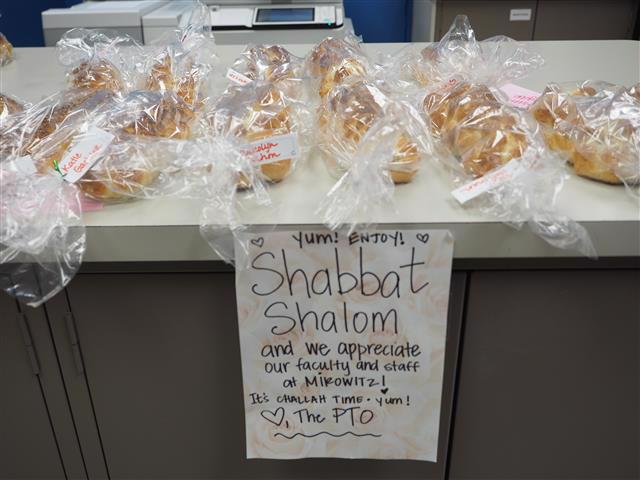 Katie
Yum! ENJOY!
Shabbat
Shalom
and we appreciate
our faculty and staff
at MIROWITZ!
It's CHALLAH TIME · yum!
♡, The PTO